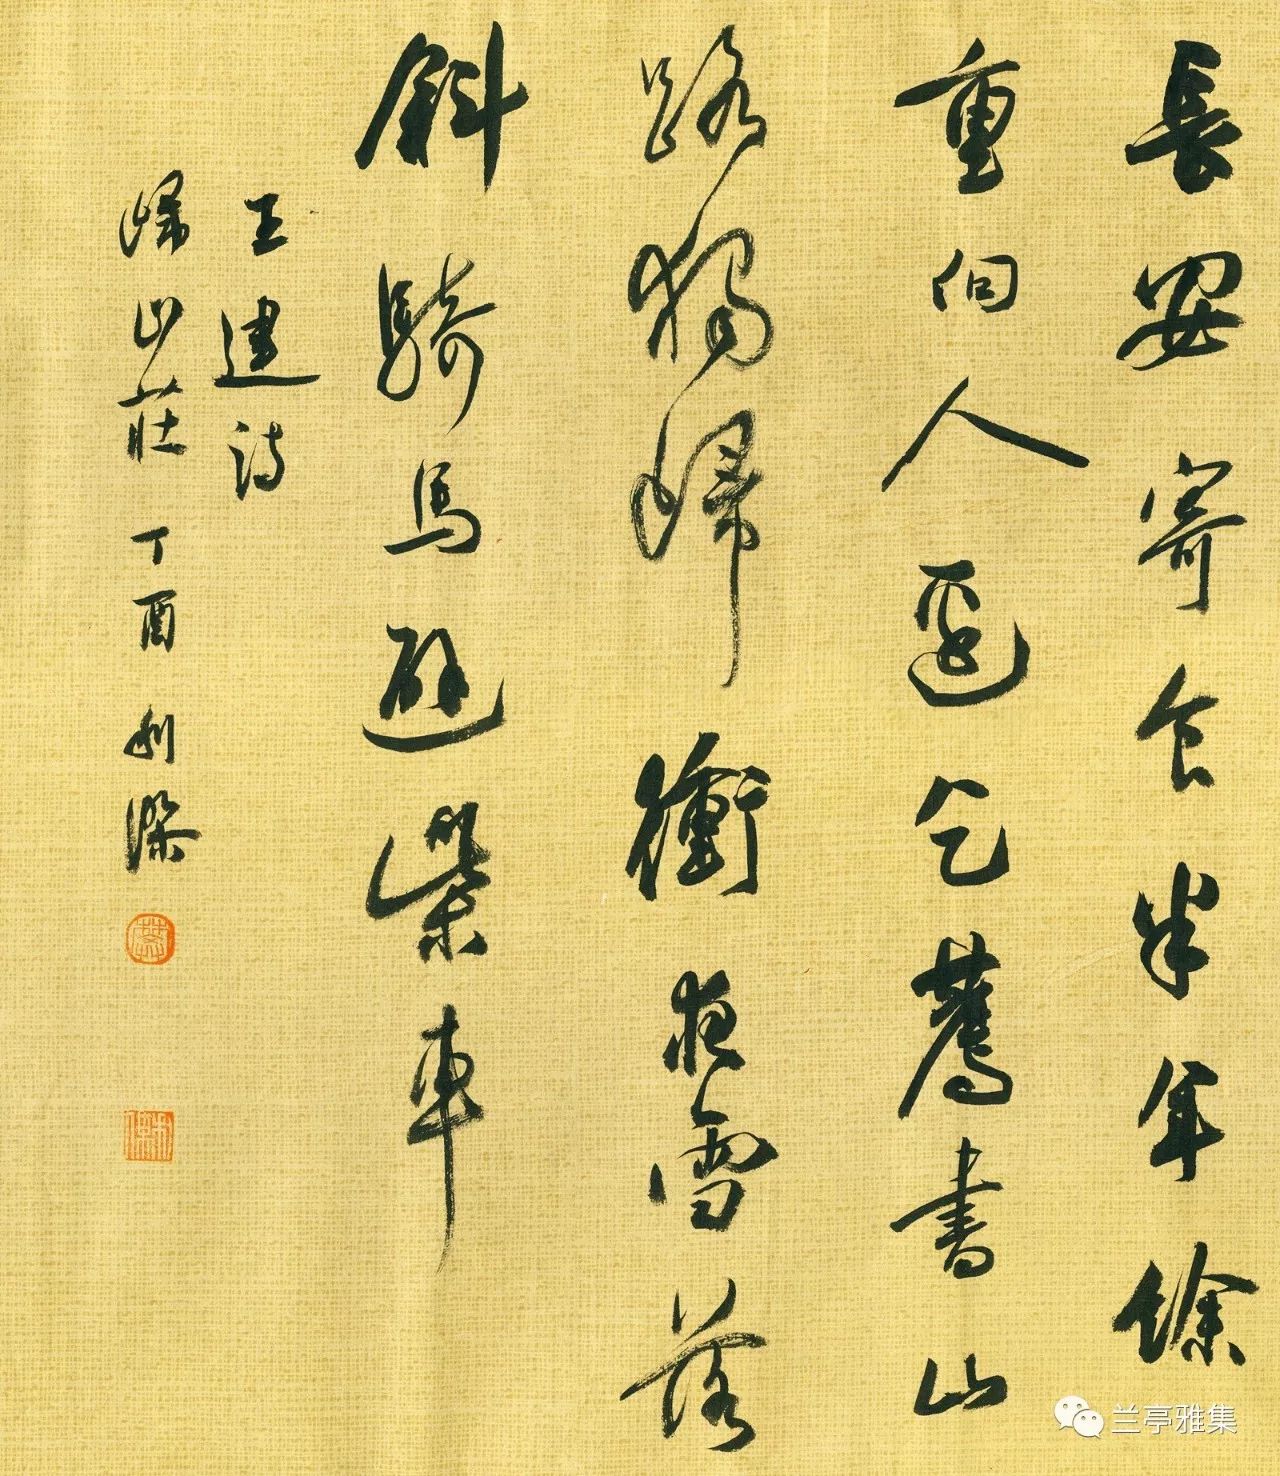 長安寄食半年餘
重向人邊乞薦書山
路獨歸衝夜雪落
斜騎馬避柴車
王建詩
歸山莊 丁酉 利傑
兰亭雅集